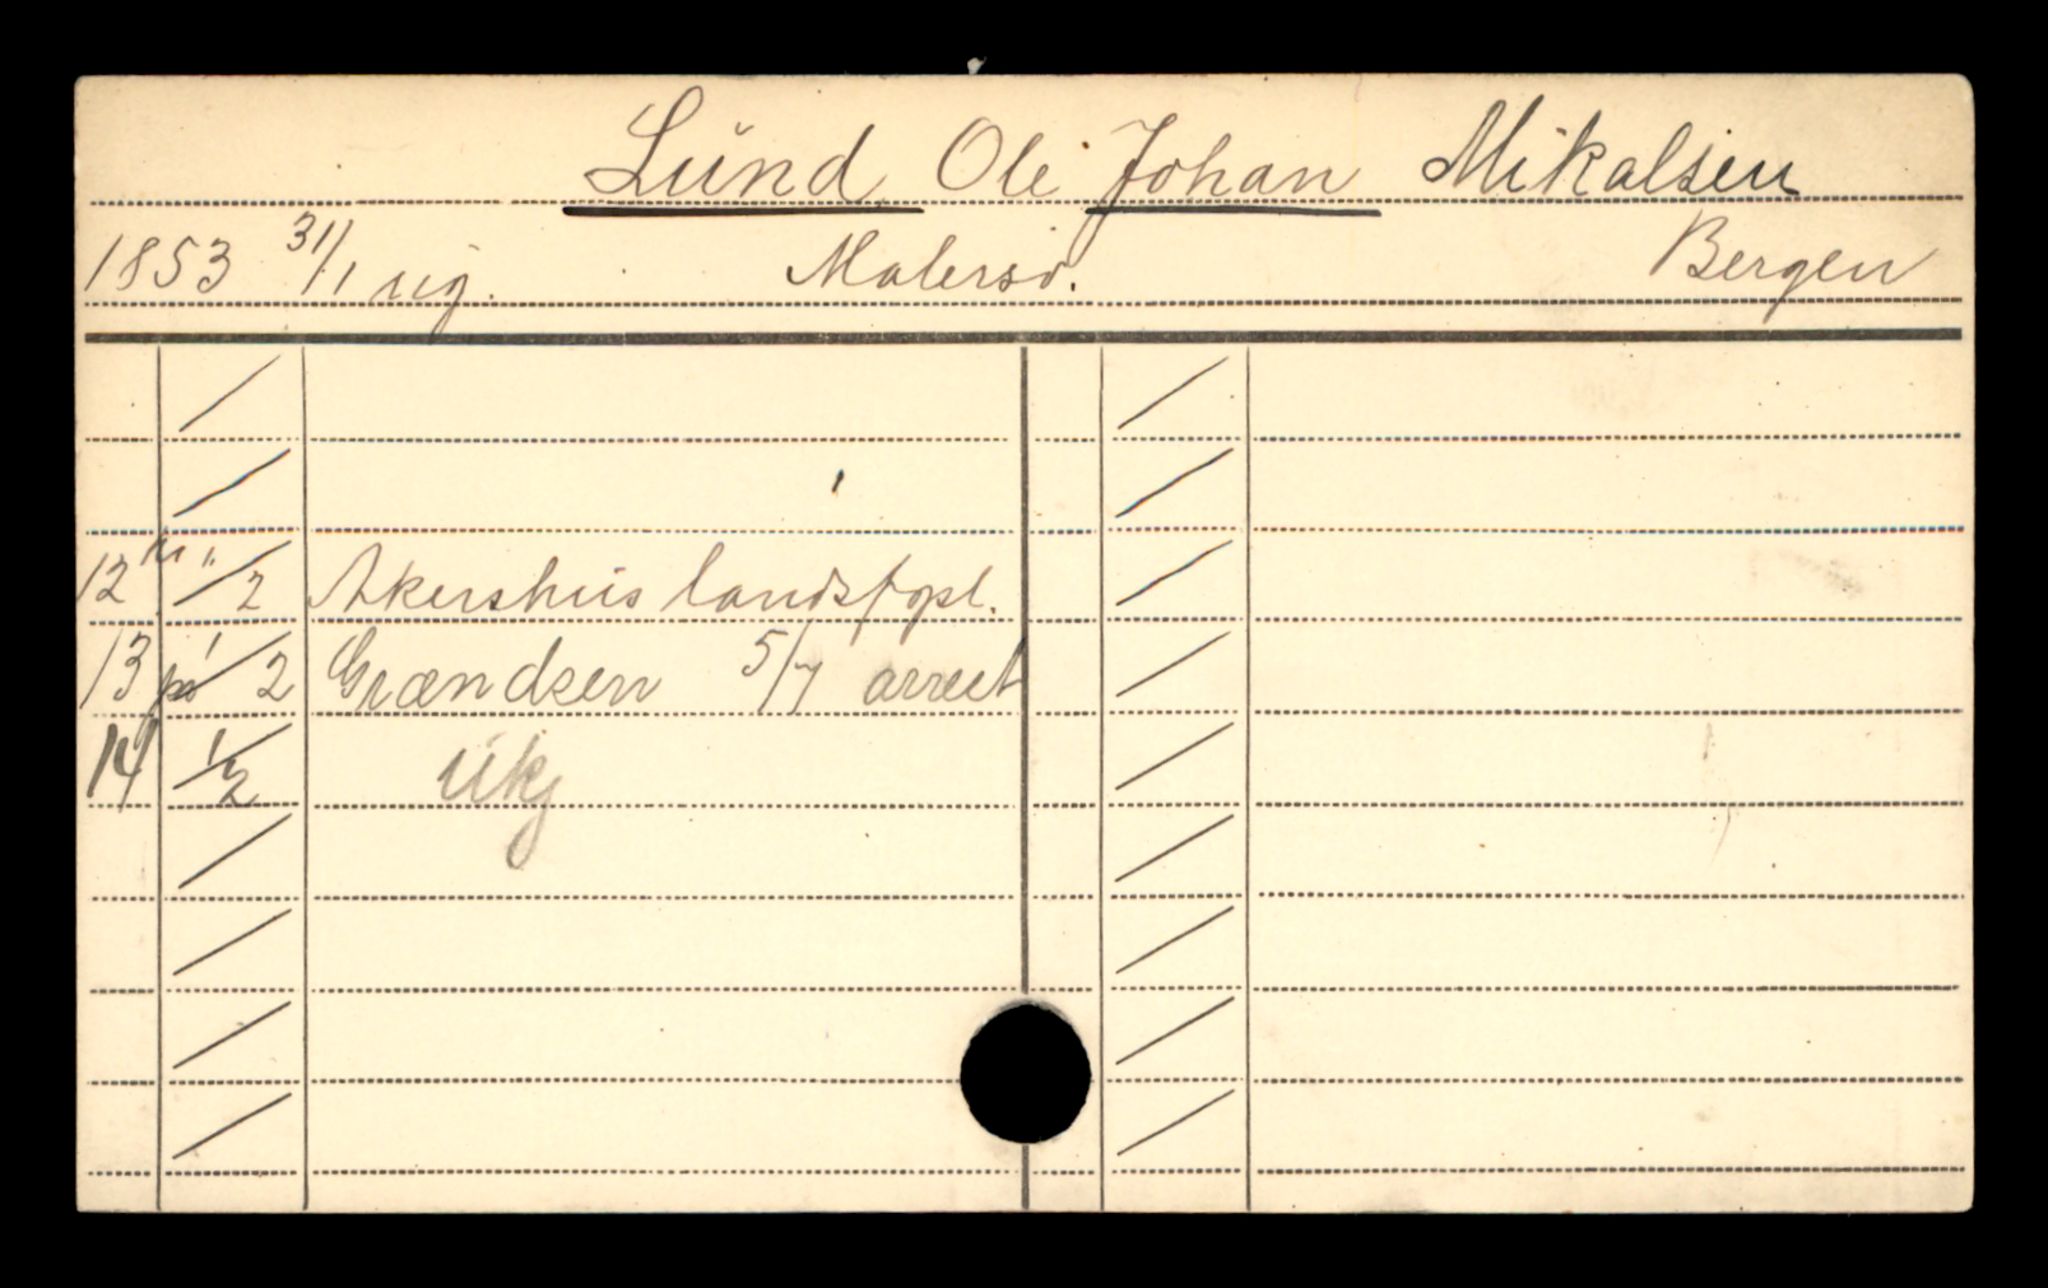 Lund, Ole Johan Mikalsen
1853 31/1 ug. Malersv. Bergen
12 "/2 Akershus landsfgsl.
13 1/2 Grændsen 5/7 arrest
14 1/2 Ukj